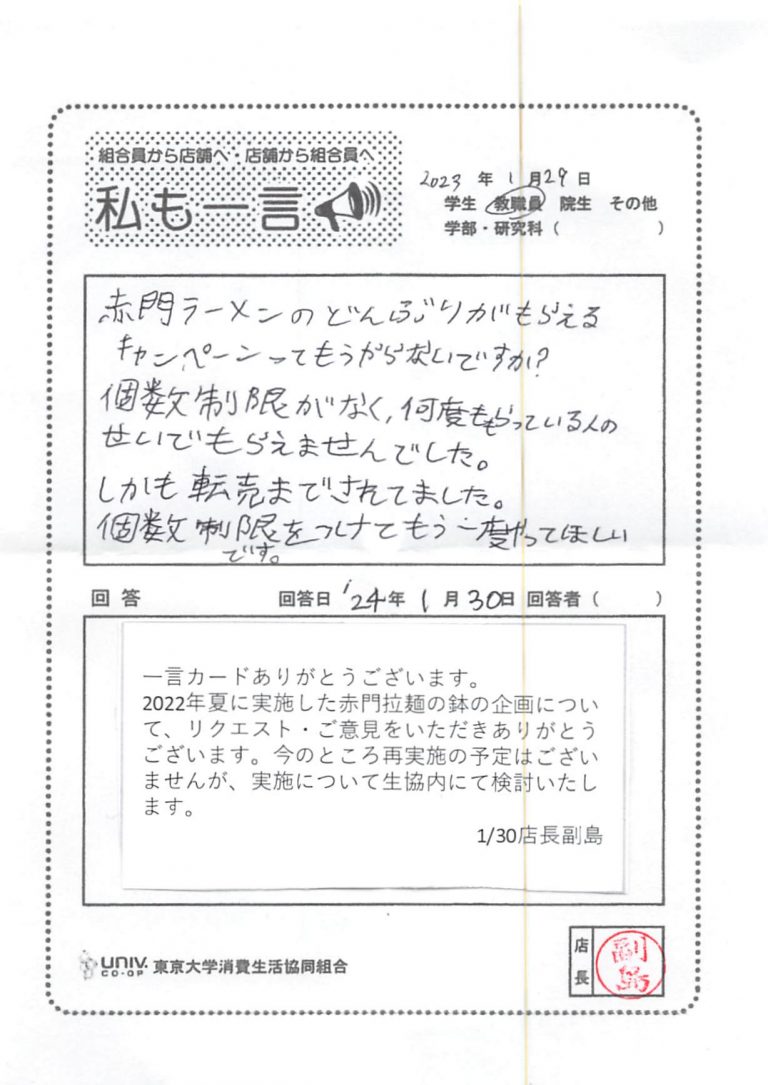 組合員から店舗へ・店舗から組合員へ
私も一言
2023 年 1 月 29 日
学生 教職員 院生 その他
学部・研究科 ( )
赤門ラーメンのどんぶりがもらえる
キャンペーンってもうやらないですか?
個数制限がなく、何度ももらっている人の
せいでもらえませんでした。
しかも転売までされてました。
個数制限をつけてもう一度やってほしい
です。
回答 回答日 '24年 1月 30日 回答者 ( )
一言カードありがとうございます。
2022年夏に実施した赤門拉麺の鉢の企画につい
て、リクエスト・ご意見をいただきありがとう
ございます。今のところ再実施の予定はござい
ませんが、実施について生協内にて検討いたし
ます。
1/30店長副島
UNIV.
CO-OP
東京大学消費生活協同組合
店長
副島